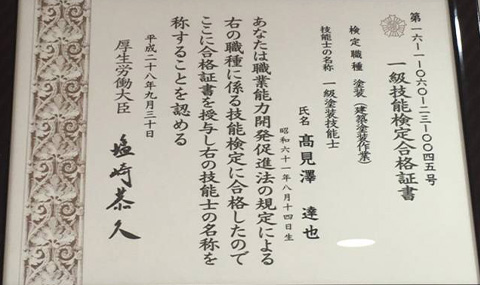 第一六-一-〇六〇-二三-〇〇四五号
一級技能検定合格証書
検定職種　塗装(建築塗装作業)
技能士の名称　一級塗装技能士
氏名　髙見澤　達也
昭和六十一年八月十四日生
あなたは職業能力開発促進法の規定による
右の職種に係る技能検定に合格したので
ここに合格証書を授与し右の技能士の名称を
称することを認める
平成二十八年九月三十日
厚生労働大臣　塩崎恭久